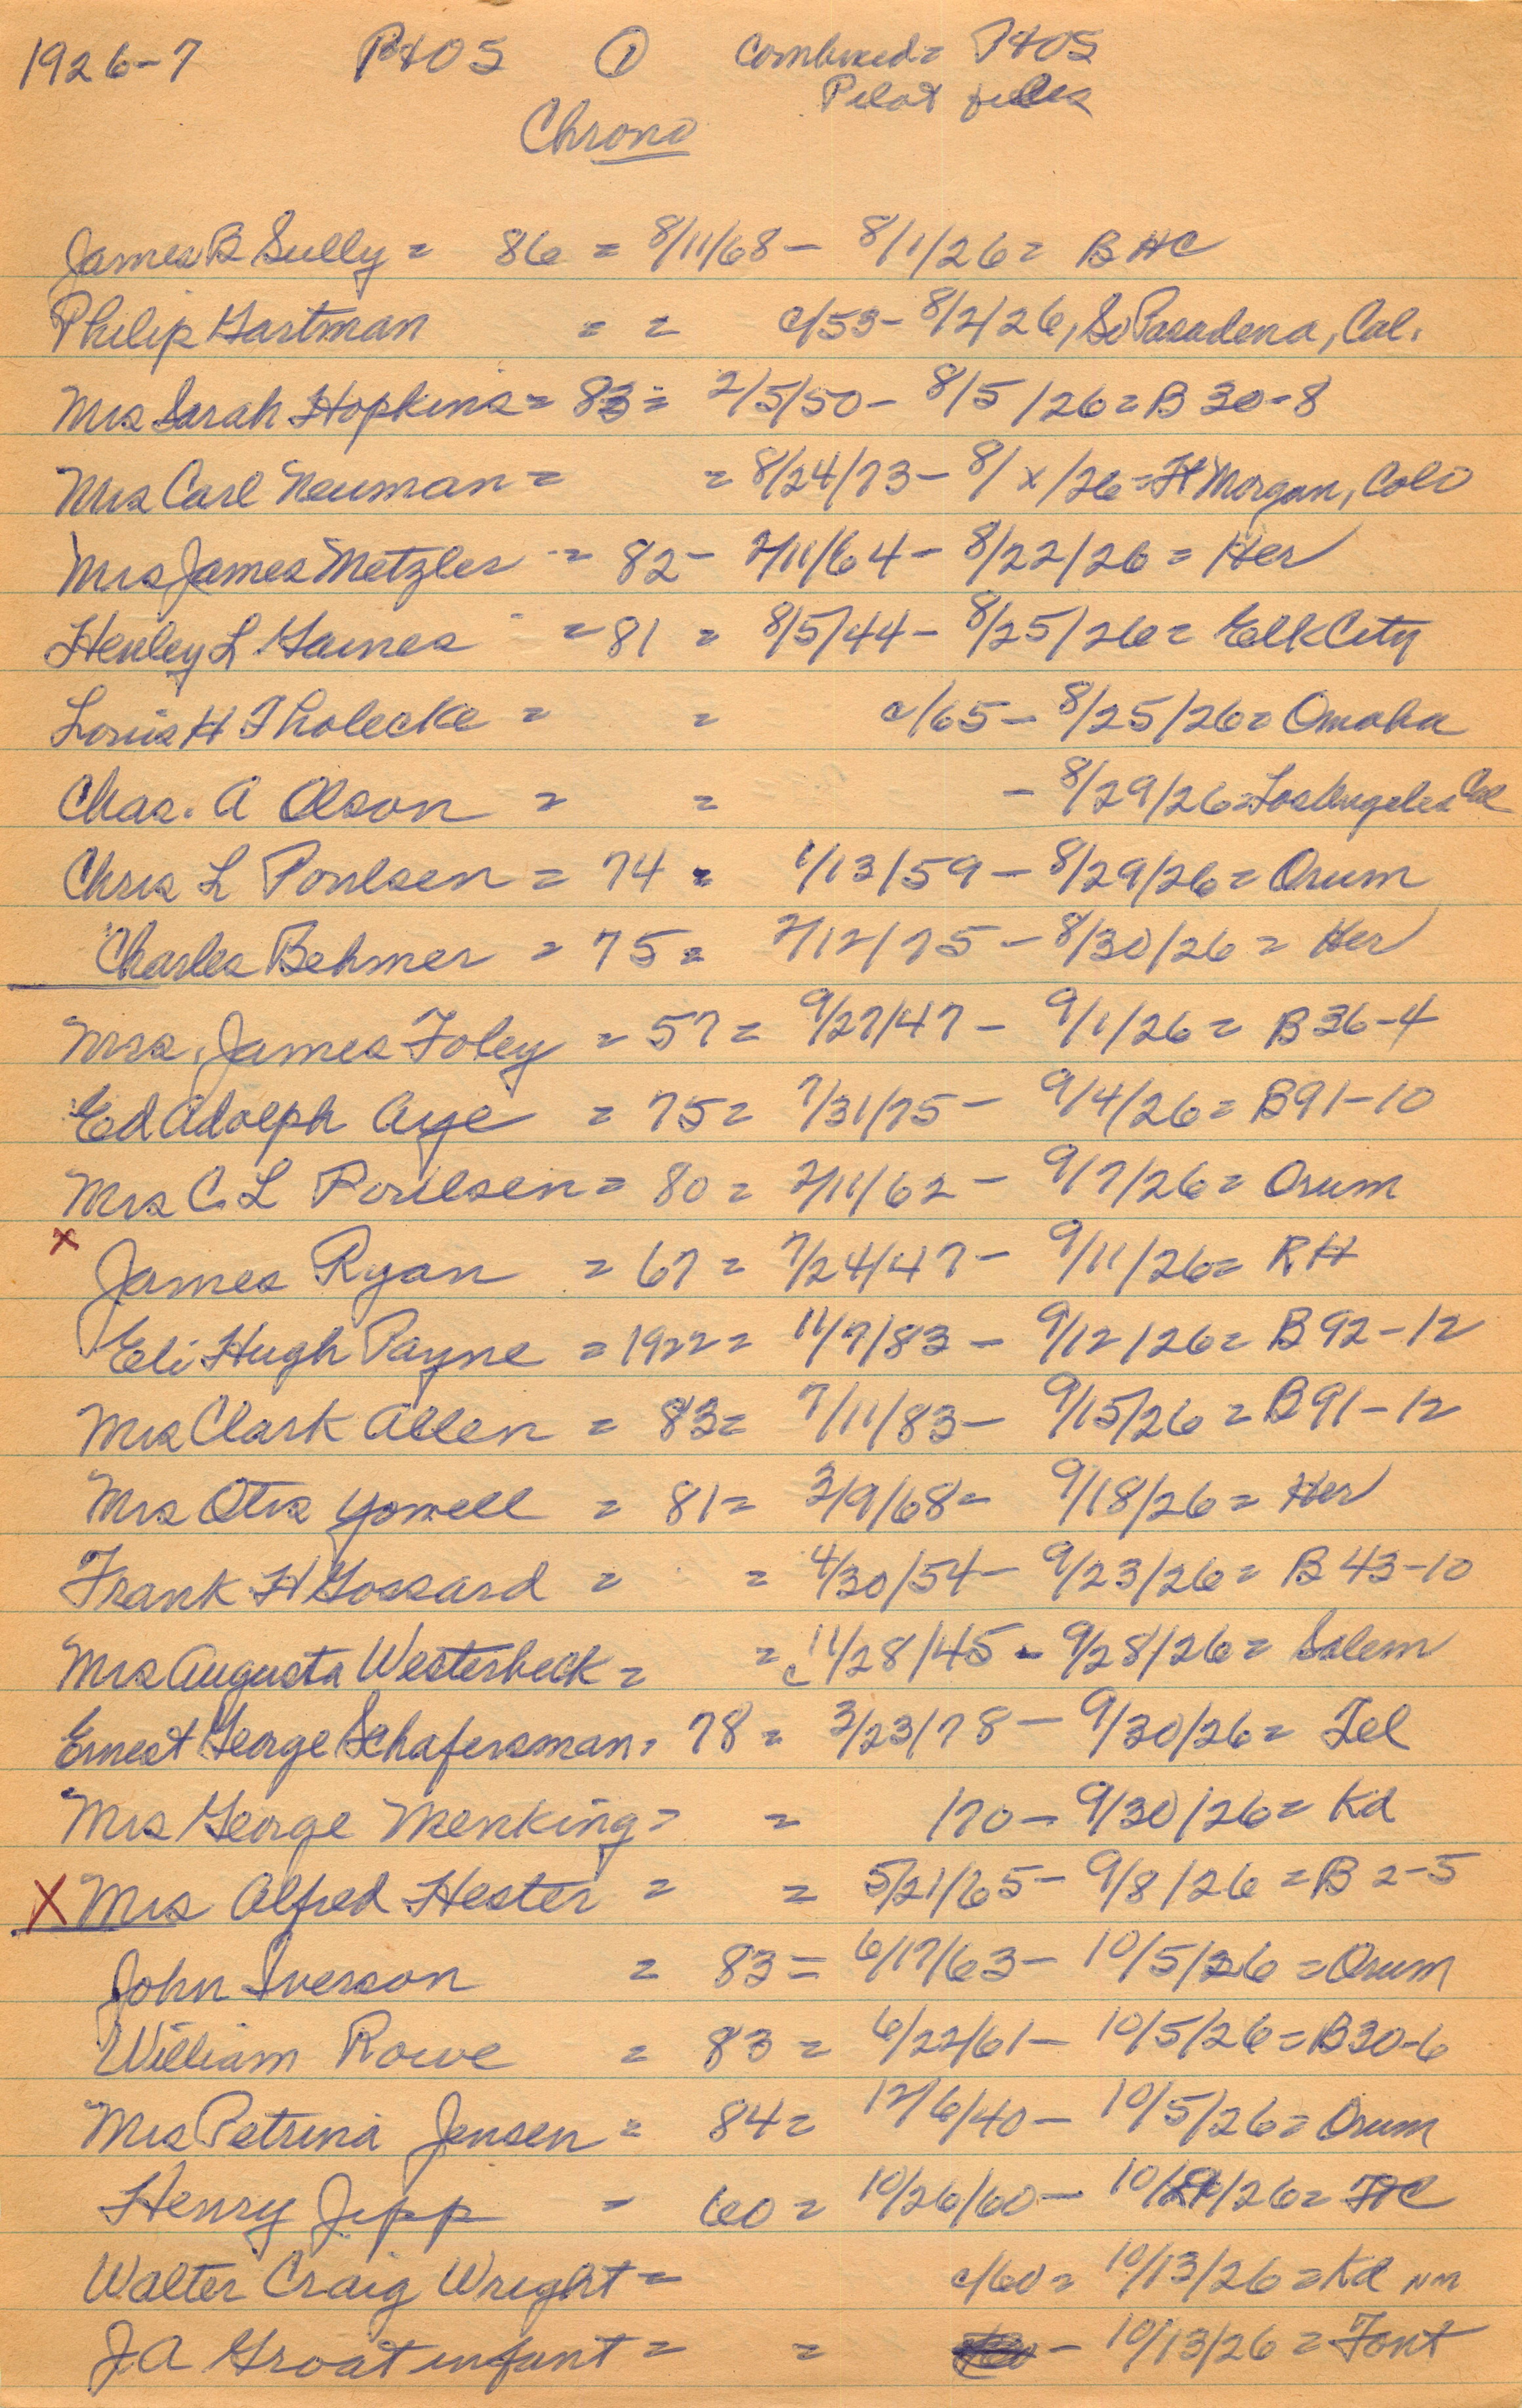 1926-7 P+OS ① Combined = P+OS
Pilot files
Chrono
James B Sully = 86 = 8/11/68 - 8/1/26 = B HC
Philip Gartman = = c/53 - 8/2/26, So Pasadena, Cal.
Mrs Sarah Hopkins = 83 = 2/5/50 - 8/5/26 = B 30-8
Mrs Carl Neuman = = 8/24/73 - 8/x/26 = Ft Morgan, Colo
Mrs James Metzler = 82 - 2/11/64 - 8/22/26 = Her
Henley L Gaines = 81 = 8/5/44 - 8/25/26 = Elk City
Louis H Tholecke = = c/65 - 8/25/26 = Omaha
Chas. A Olson = = - 8/29/26 = Los Angeles Cal
Chris L Poulsen = 74 = 1/13/59 - 8/29/26 = Orum
Charles Behmer = 75 = 2/12/75 - 8/30/26 = Her
Mrs. James Foley = 57 = 9/27/47 - 9/1/26 = B 36-4
Ed Adolph Aye = 75 = 7/31/75 - 9/4/26 = B 91-10
Mrs C. L Poulsen = 80 = 2/11/62 - 9/7/26 = Orum
x James Ryan = 67 = 7/24/47 - 9/11/26 = RH
Eli Hugh Payne = 1922 = 11/7/83 - 9/12/26 = B 92-12
Mrs Clark Allen = 83 = 7/11/83 - 9/15/26 = B 91-12
Mrs Otis Yowell = 81 = 3/9/68 = 9/18/26 = Her
Frank H Gossard = = 4/30/54 - 9/23/26 = B 43-10
Mrs Augusta Westerbeck = = c 11/28/45 - 9/28/26 = Salem
Ernest George Schafersman = 78 = 3/23/78 - 9/30/26 = Tel
Mrs George Menking = = /70 - 9/30/26 = Kd
X Mrs Alfred Hester = = 5/21/65 - 9/8/26 = B 2-5
John Iverson = 83 = 6/17/63 - 10/5/26 = Orum
William Rowe = 83 = 6/22/61 - 10/5/26 = B 30-6
Mrs Petrina Jensen = 84 = 12/6/40 - 10/5/26 = Orum
Henry Jipp = 60 = 10/26/60 - /26 = FtC
Walter Craig Wright = c/60 = 10/13/26 = Kd NM
J A Groat infant = = - 10/13/26 = Font